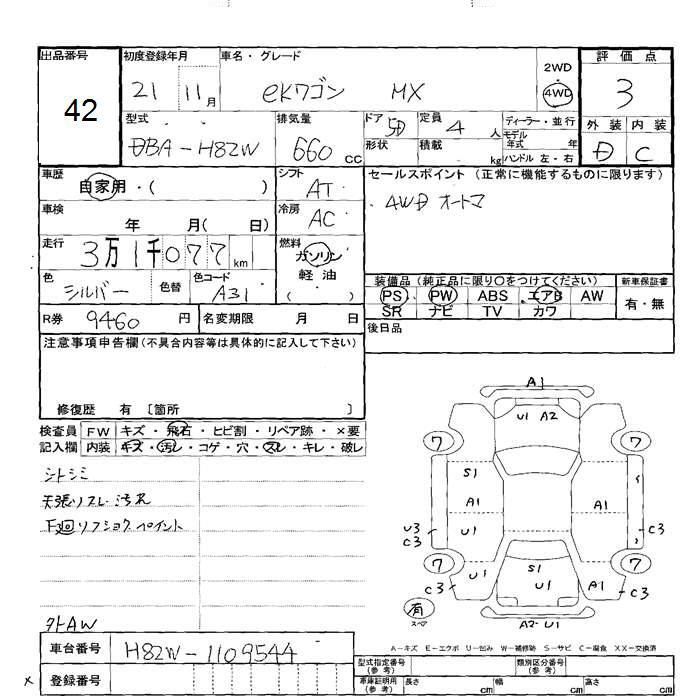 出品番号 初度登録年月 車名・グレード 評価点
42 21 11月 eKワゴン MX 2WD 4WD 3
型式 排気量 ドア 5D 定員 4人 ディーラー・並行 外装 内装
DBA-H82W 660cc 形状 積載 kg モデル年式 年 D C
ハンドル 左・右
車歴 シフト セールスポイント (正常に機能するものに限ります)
自家用・( ) AT 4WD オートマ
車検 年 月( 日) 冷房 AC
走行 3万1千077km 燃料 ガソリン
軽油
( )
色 シルバー 色替 色コード A31
装備品 (純正品に限り○をつけてください) 新車保証書
PS PW ABS エアB AW 有・無
SR ナビ TV カワ
R券 9460円 名変期限 月 日
後日品
注意事項申告欄(不具合内容等は具体的に記入して下さい)
修復歴 有 〔箇所 〕
検査員 FW キズ・飛石・ヒビ割・リペア跡・×要
記入欄 内装 キズ・汚レ・コゲ・穴・スレ・キレ・破レ
シトシミ
天張リスレ汚れ
下廻リフショクペイント
外AW
A1
U1 A2
7 7
S1
A1 A1
U3 U1 C3
C3
7 7
U1 S1 A1
C3 U1 C3
有
スペア A2-U1
A-キズ E-エクボ U-凹み W-補修跡 S-サビ C-腐食 XX-交換済
車台番号 H82W-1109544
× 登録番号
型式指定番号(参考) 類別区分番号(参考)
車庫証明用(参考) 長さ cm 幅 cm 高さ cm